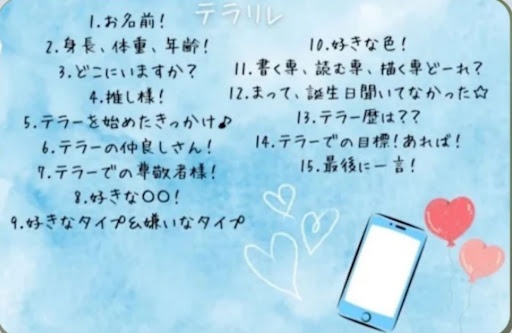 テラリレ
1.お名前!
2.身長、体重、年齢!
3.どこにいますか?
4.推し様!
5.テラーを始めたきっかけ♪
6.テラーの仲良しさん!
7.テラーでの尊敬者様!
8.好きな〇〇!
9.好きなタイプ&嫌いなタイプ
10.好きな色!
11.書く専、読む専、描く専どーれ?
12.まって、誕生日聞いてなかった☆
13.テラー歴は??
14.テラーでの目標!あれば!
15.最後に一言!